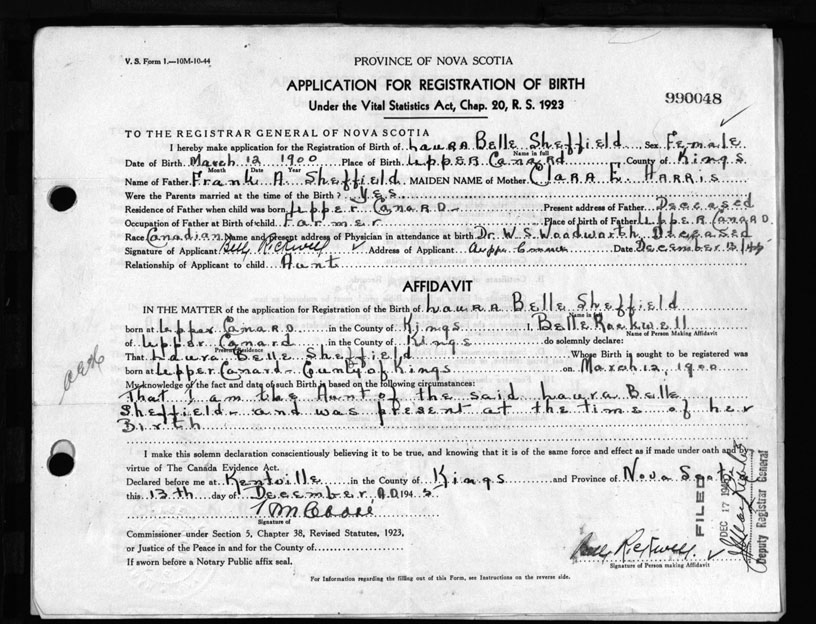 V. S. Form 1.—10M-10-44
PROVINCE OF NOVA SCOTIA
APPLICATION FOR REGISTRATION OF BIRTH
Under the Vital Statistics Act, Chap. 20, R. S. 1923
990048
TO THE REGISTRAR GENERAL OF NOVA SCOTIA
I hereby make application for the Registration of Birth of Laura Belle Sheffield Sex Female
Name in full
Date of Birth March 12 1900 Place of Birth Upper Canard County of Kings
Month Date Year
Name of Father Frank A. Sheffield MAIDEN NAME of Mother Clara E. Harris
Were the Parents married at the time of the Birth? Yes
Residence of Father when child was born Upper Canard Present address of Father Deceased
Occupation of Father at Birth of child Farmer Place of birth of Father Upper Canard
Race Canadian Name and present address of Physician in attendance at birth Dr. W. S. Woodworth Deceased
Signature of Applicant Belle Rockwell Address of Applicant Upper Canard Date December 13/45
Relationship of Applicant to child Aunt
AFFIDAVIT
IN THE MATTER of the application for Registration of the Birth of Laura Belle Sheffield
Name in full
born at Upper Canard in the County of Kings I, Belle Rockwell
Name of Person Making Affidavit
of Upper Canard in the County of Kings do solemnly declare:
Present Residence
That Laura Belle Sheffield Whose Birth is sought to be registered was
born at Upper Canard - County of Kings on March 12, 1900
My knowledge of the fact and date of such Birth is based on the following circumstances:
That I am the Aunt of the said Laura Belle
Sheffield - and was present at the time of her
Birth
I make this solemn declaration conscientiously believing it to be true, and knowing that it is of the same force and effect as if made under oath and by
virtue of The Canada Evidence Act.
Declared before me at Kentville in the County of Kings and Province of Nova Scotia
this 13th day of December A.D. 1945
Signature of
Commissioner under Section 5, Chapter 38, Revised Statutes, 1923,
or Justice of the Peace in and for the County of
If sworn before a Notary Public affix seal.
Belle Rockwell
Signature of Person making Affidavit
For Information regarding the filling out of this Form, see Instructions on the reverse side.
FILED
DEC 17 1945
Deputy Registrar General